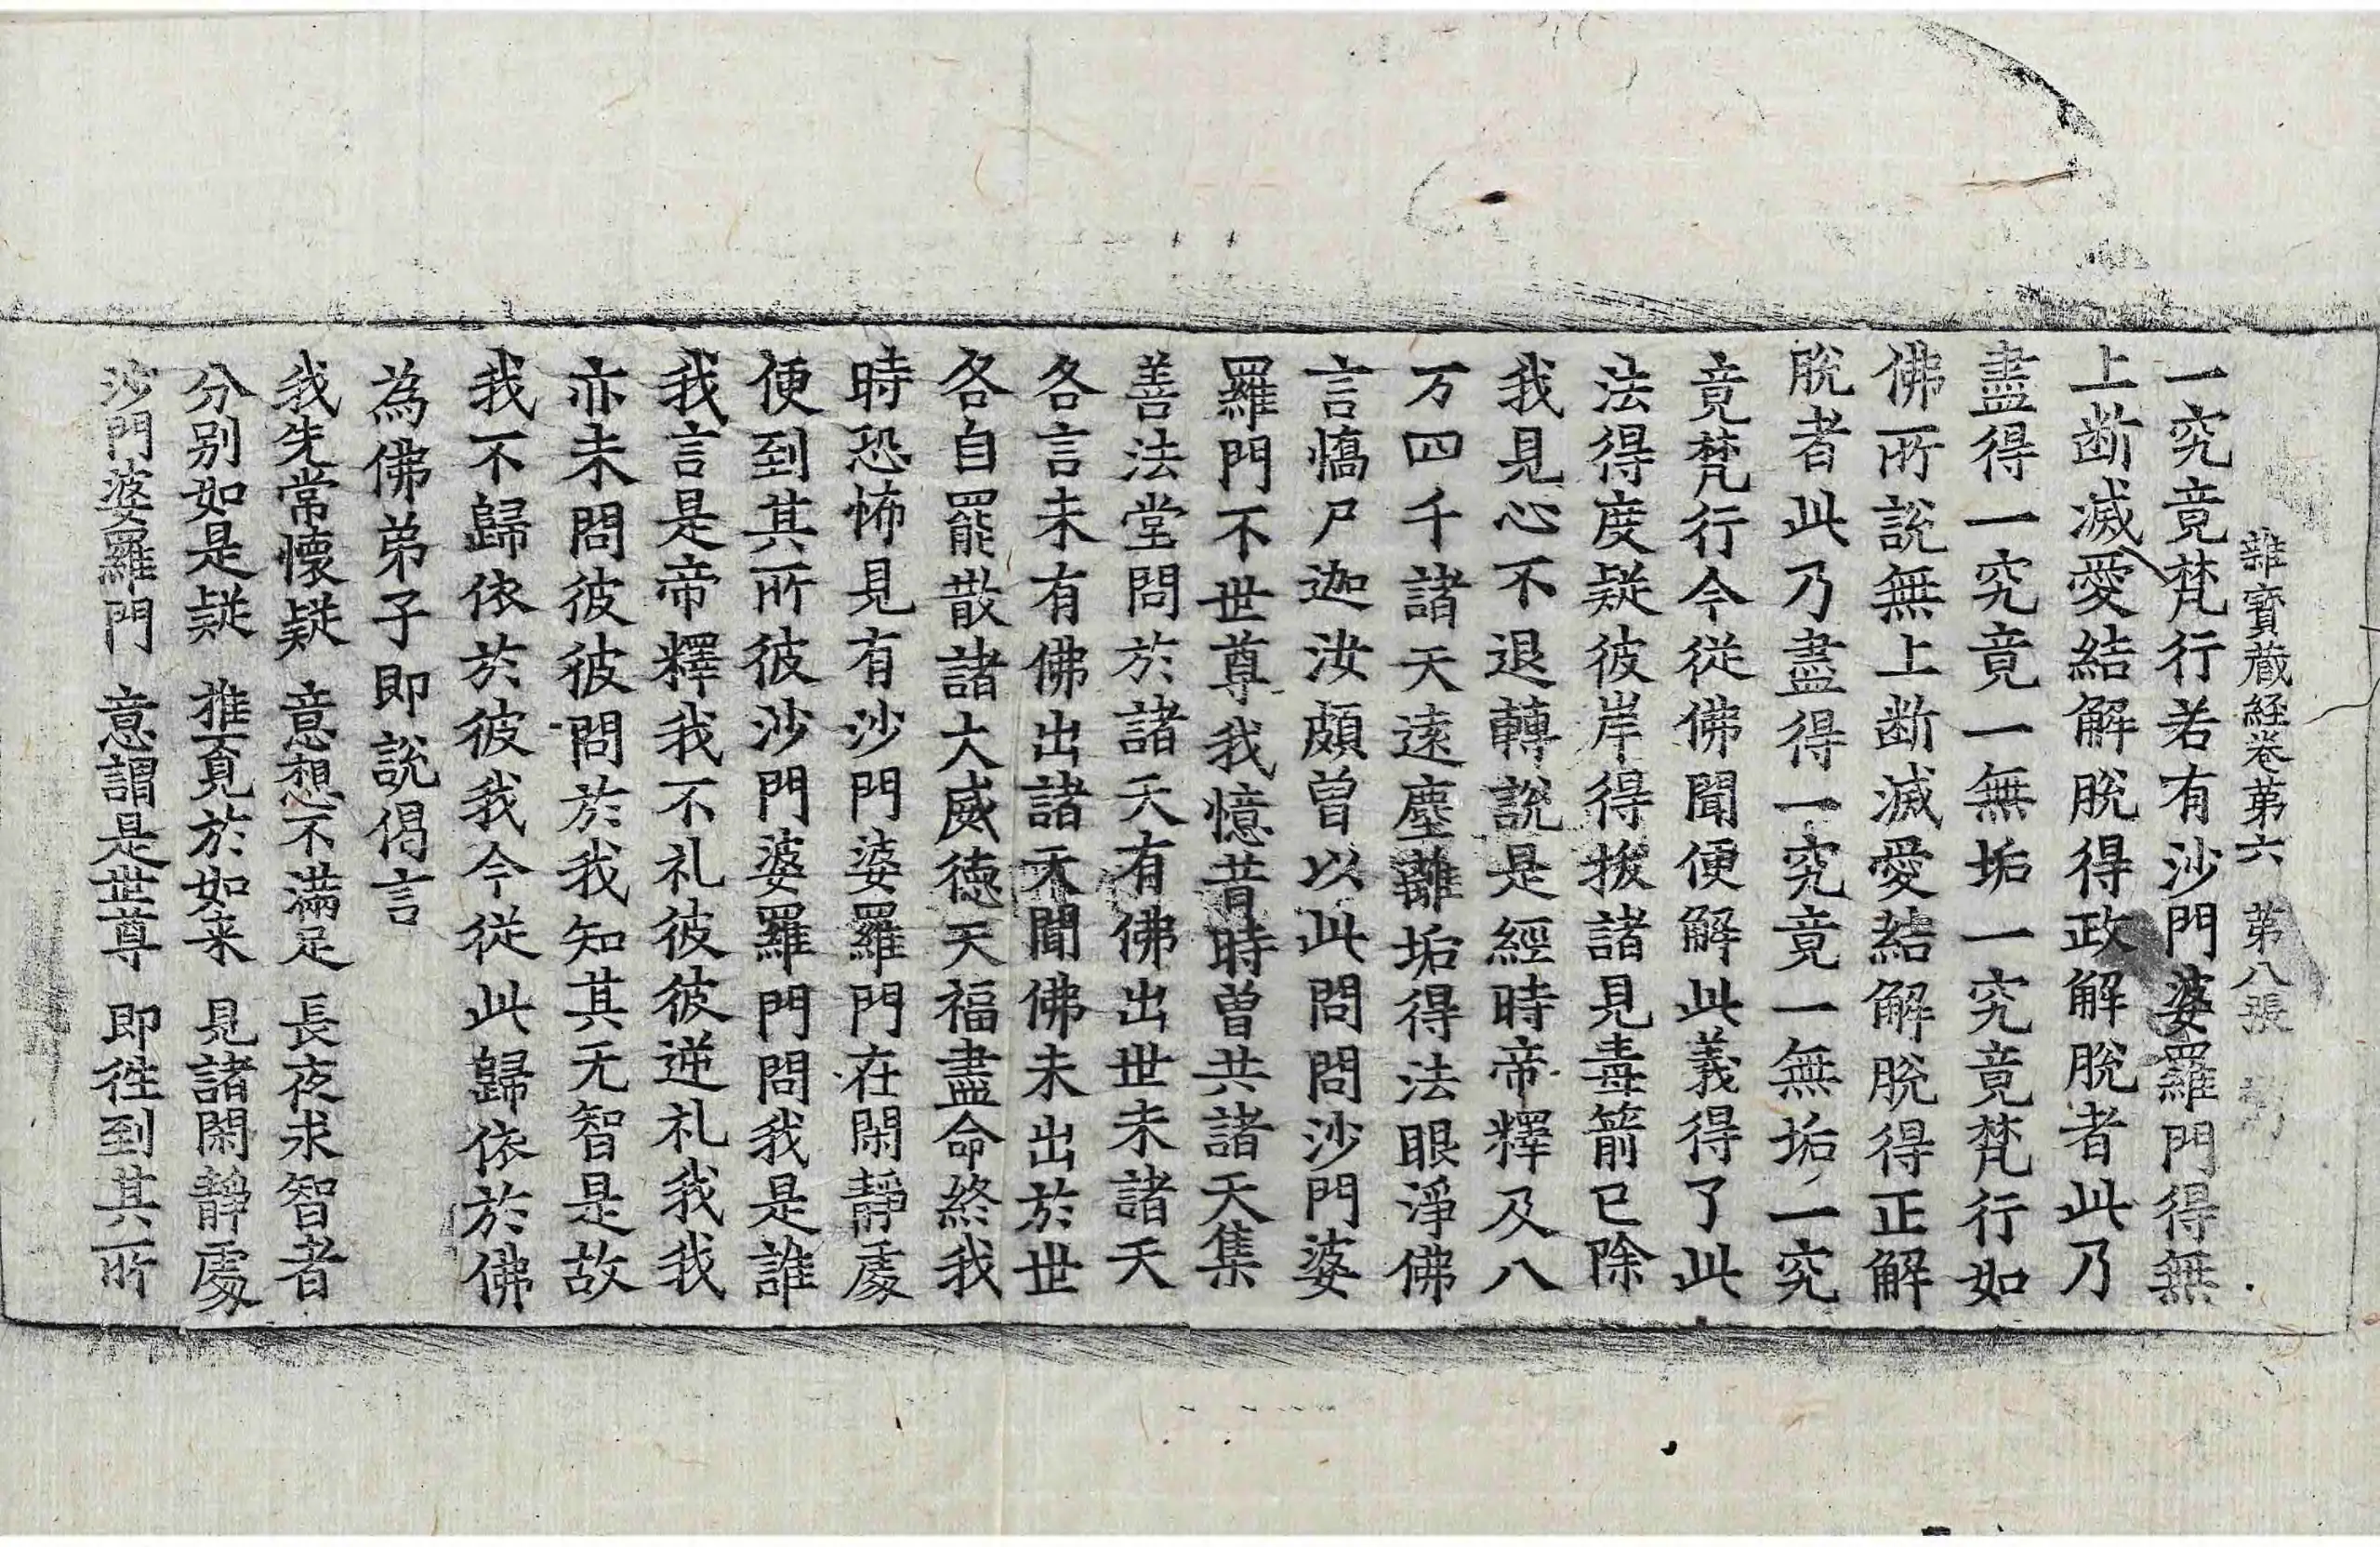 雜寶蔵経卷第六 第八張
一究竟梵行若有沙門婆羅門得無
上断滅愛結解脫得政解脫者此乃
盡得一究竟一無垢一究竟梵行如
佛所說無上断滅愛結解脫得正解
脫者此乃盡得一究竟一無垢一究
竟梵行今從佛聞便解此義得了此
法得度疑彼岸得拔諸見毒箭已除
我見心不退轉說是經時帝釋及八
万四千諸天遠塵離垢得法眼淨佛
言憍尸迦汝頗曾以此問問沙門婆
羅門不世尊我憶昔時曾共諸天集
善法堂問於諸天有佛出世未諸天
各言未有佛出諸天聞佛未出於世
各自罷散諸大威德天福盡命終我
時恐怖見有沙門婆羅門在閑靜處
便到其所彼沙門婆羅門問我是誰
我言是帝釋我不礼彼彼逆礼我我
亦未問彼彼問於我知其无智是故
我不歸依於彼我今從此歸依於佛
為佛弟子即說偈言
我先常懷疑 意想不滿足 長夜求智者
分別如是疑 推覓於如来 見諸閑靜處
沙門婆羅門 意謂是世尊 即徃到其所